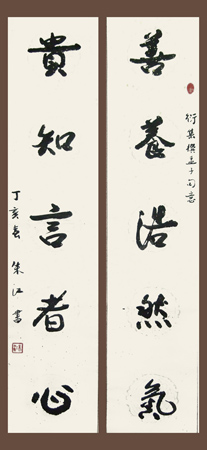 善養浩然氣
衍異撰孟子句意
貴知言者心
丁亥春 朱江書